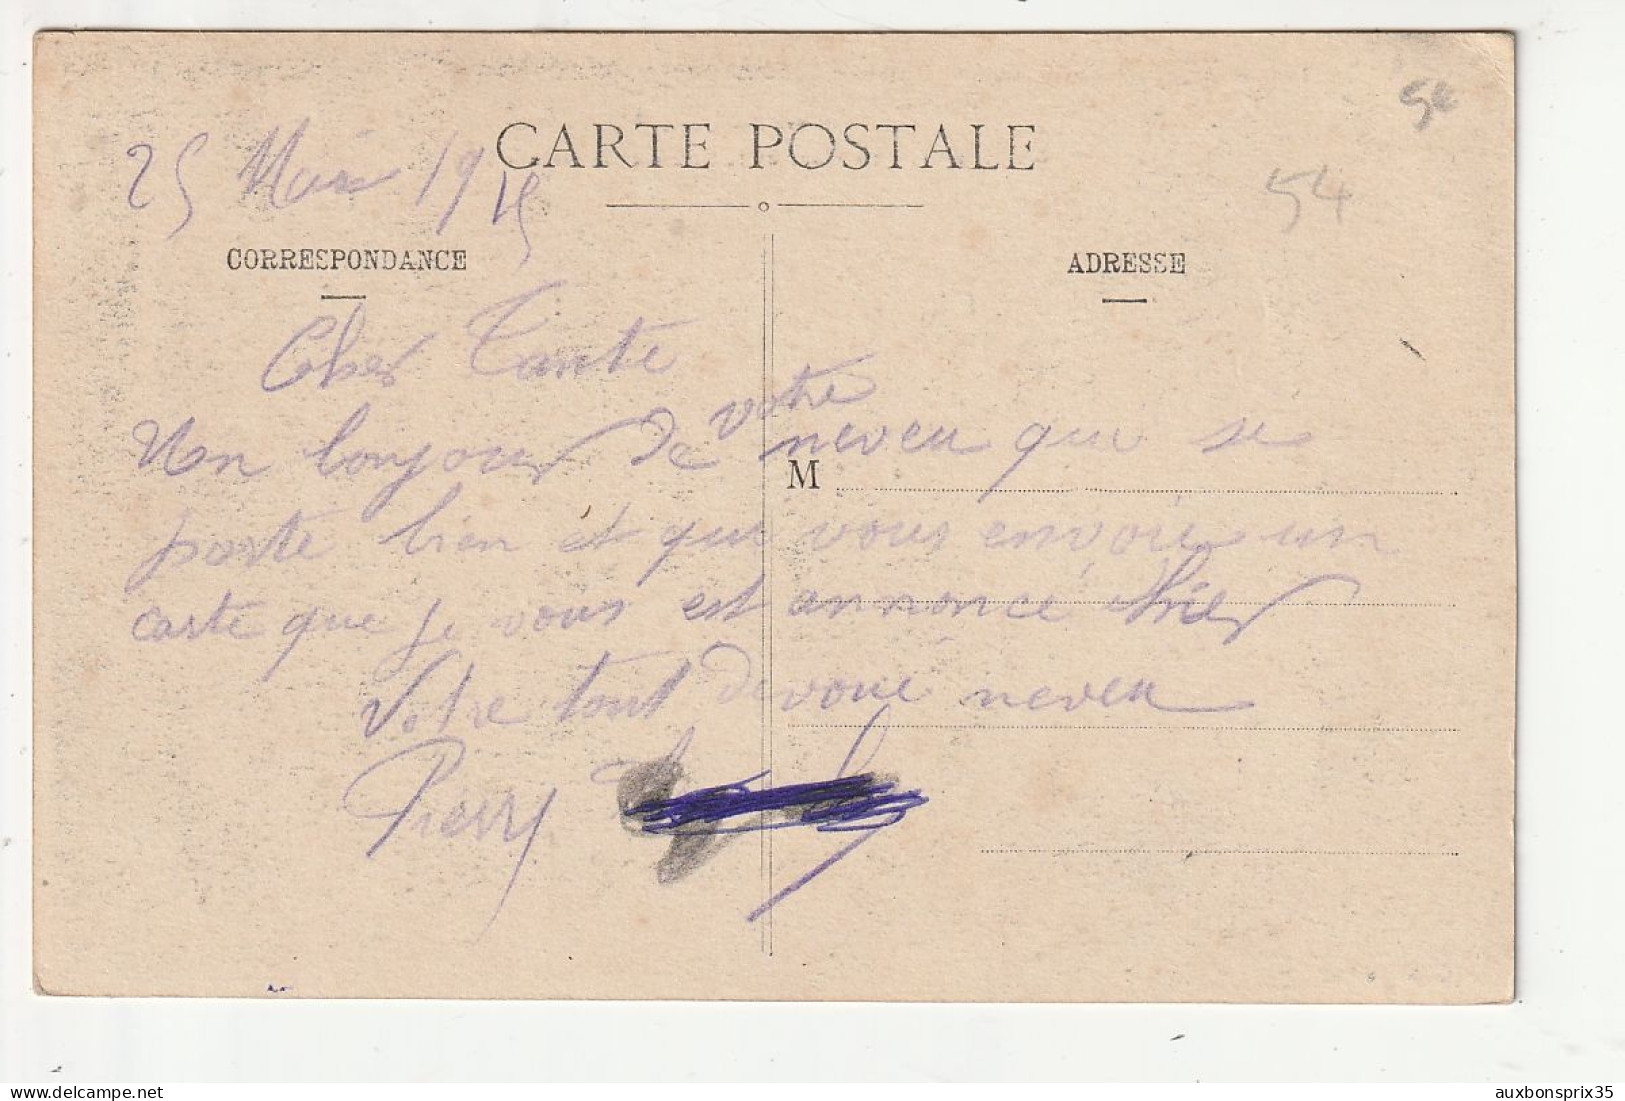 5€
CARTE POSTALE
25 Mai 1915
54
CORRESPONDANCE
ADRESSE
Cher Tante
Un bonjour de votre neveu qui se
M
porte bien et qui vous envoie un
carte que je vous est annoncé hier
Votre tout devoué neveu
Pierry
auxbonsprix35